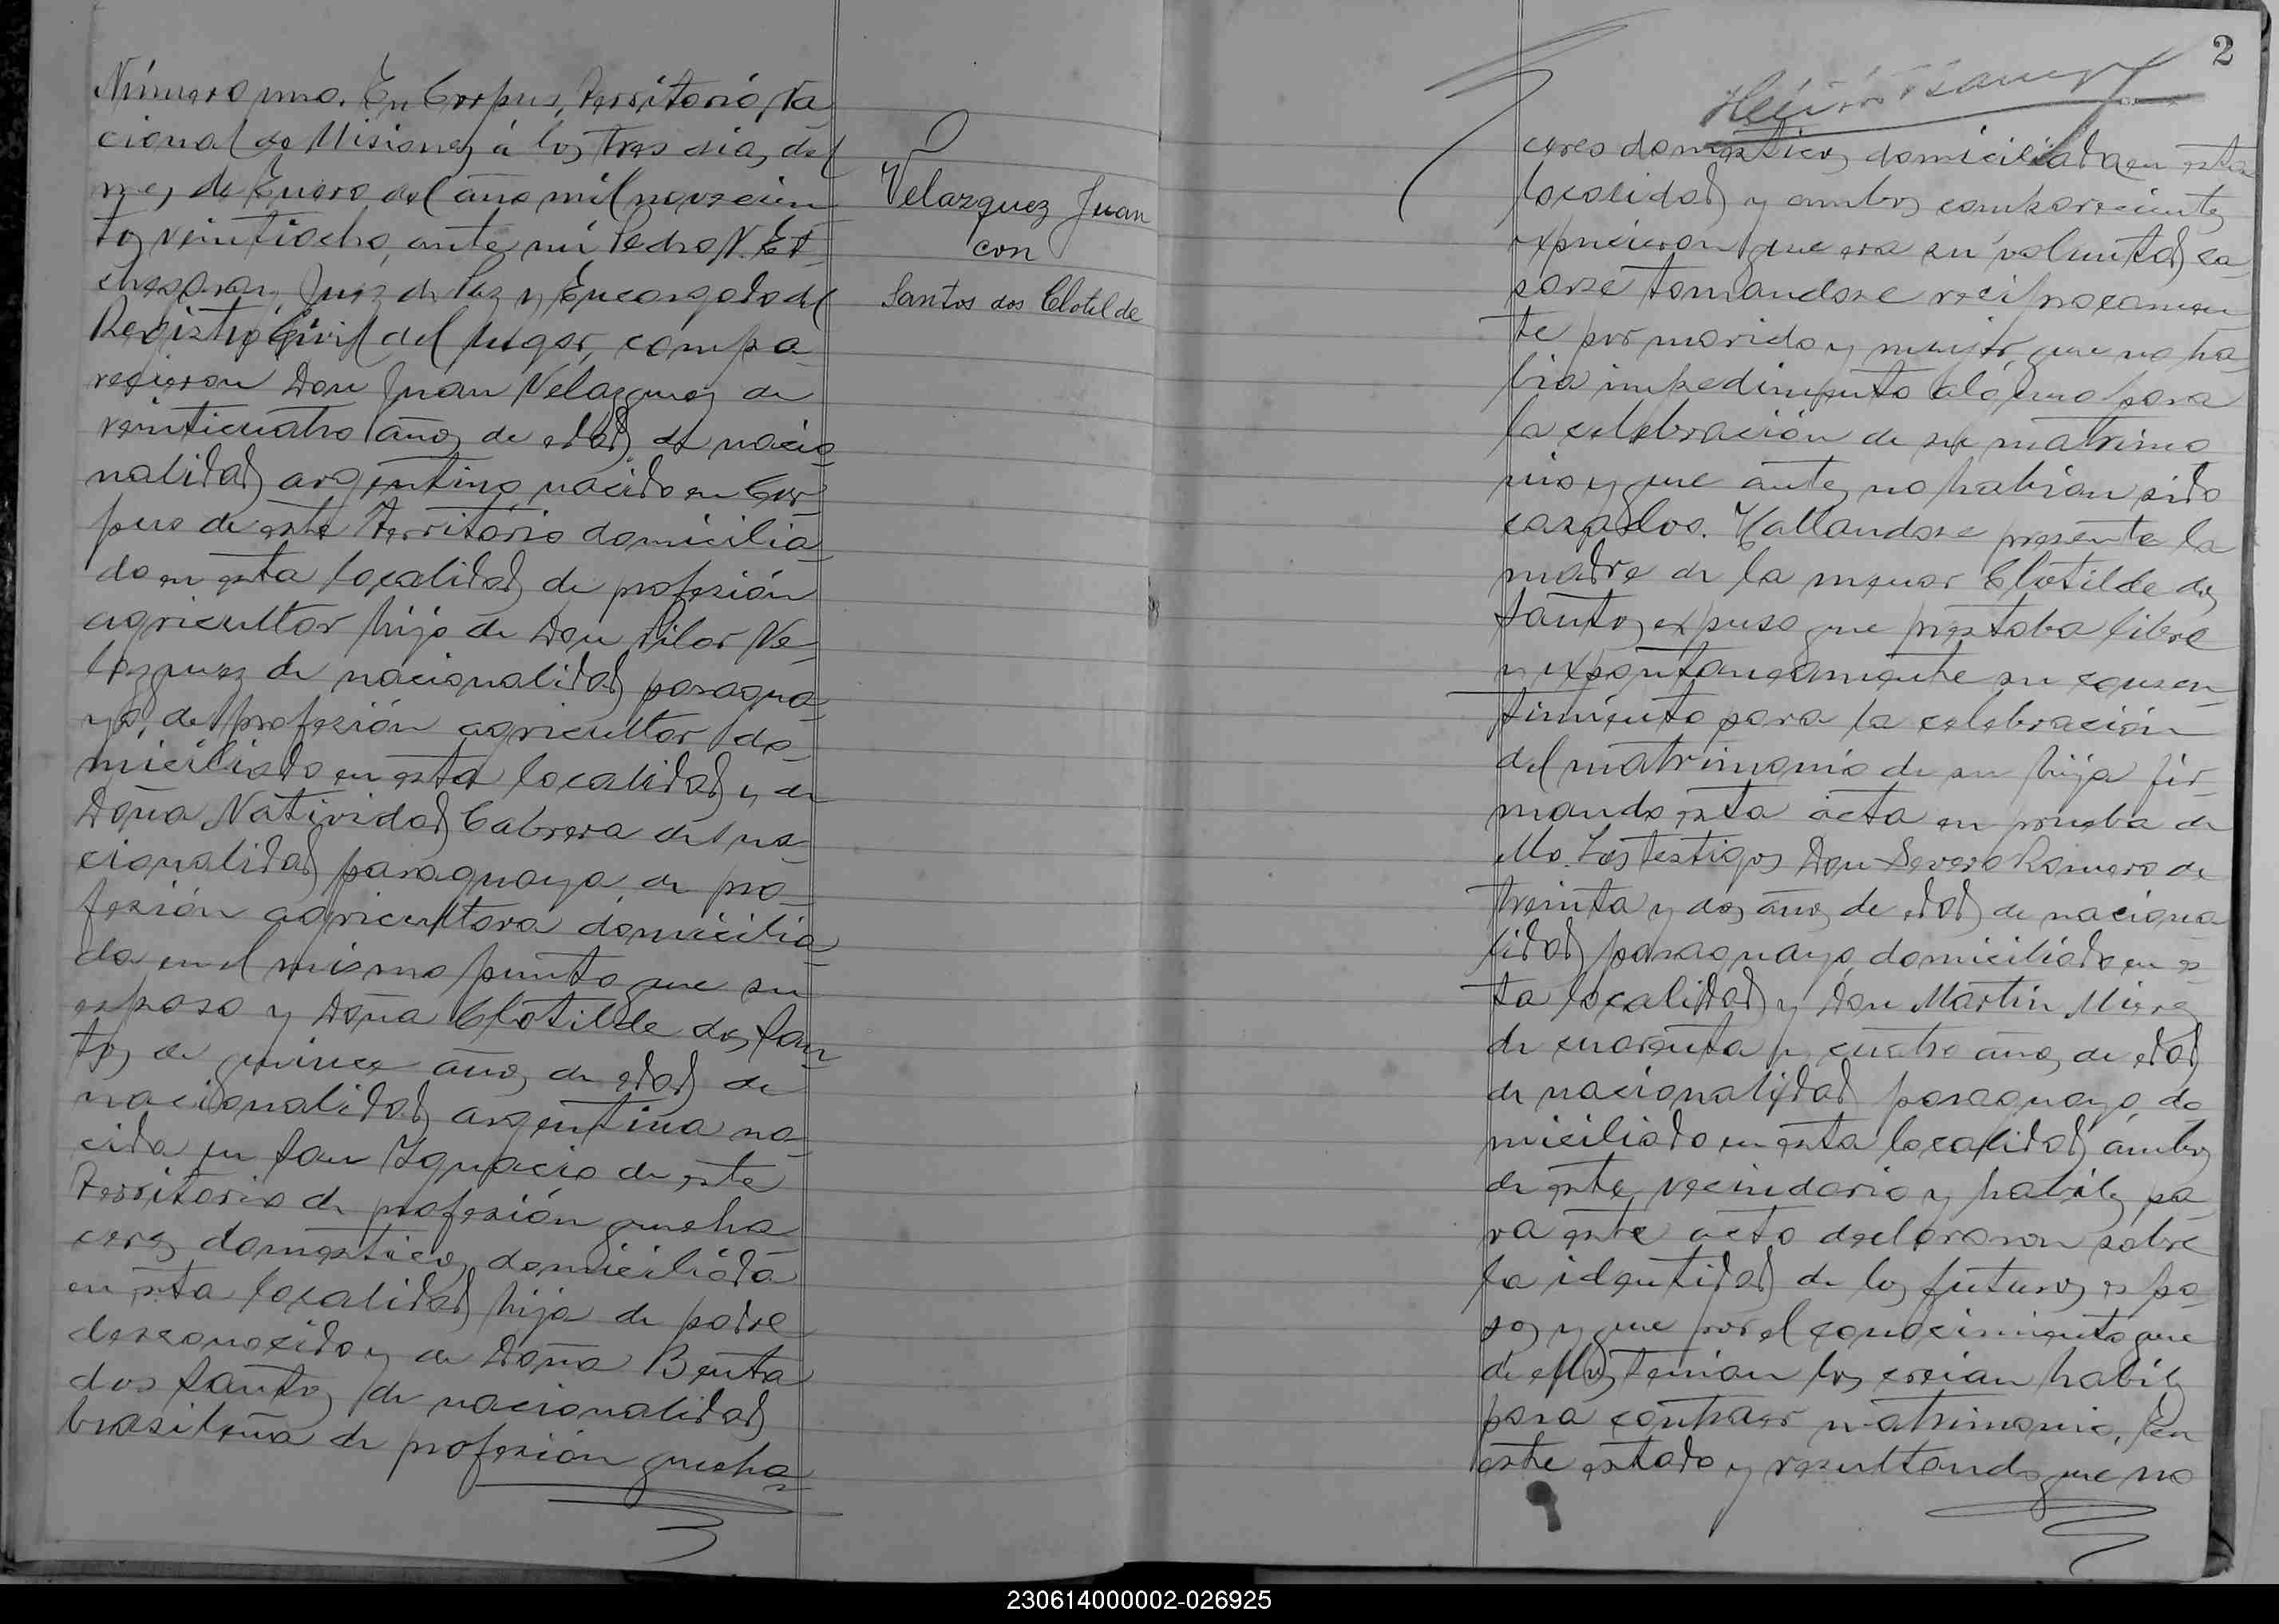 Número uno. En Corpus, Territorio Na
cional de Misiones á los tres dias del
mes de Enero del año mil novecien
tos veintiocho, ante mí Pedro N. Et
chegaray Juez de Paz y Encargado del
Registro Civil del lugar, compa
recieron Don Juan Velazquez de
veinticuatro años de edad, de nacio
nalidad argentino nacido en Cor
pus de este Territorio domicilia
do en esta localidad de profesión
agricultor hijo de Don Pilar Ve
lazquez de nacionalidad paragua
yo, de profesión agricultor do
miciliado en esta localidad y de
Doña Natividad Cabrera de na
cionalidad paraguaya de pro
fesión agricultora domicilia
da en el mismo punto que su
esposo y Doña Clotilde dos San
tos de quince años de edad de
nacionalidad argentina na
cida en San Ignacio de este
Territorio de profesión queha
ceres domesticos domiciliada
en esta localidad hija de padre
desconocido y de Doña Benta
dos Santos de nacionalidad
brasileña de profesión queha
Velazquez Juan
con
Santos dos Clotilde
2
ceres domesticos domiciliada en esta
localidad y ambos comparecientes
expusieron que era su voluntad ca
sarse tomandose reciprocamen
te por marido y mujer, que no ha
bia impedimento alguno para
la celebración de su matrimo
nio y que antes no habian sido
casados. Hallandose presente la
madre de la menor Clotilde dos
Santos expuso que prestaba libre
y expontaneamente su consen
timiento para la celebración
del matrimonio de su hija fir
mando esta acta en prueba de
ello. Los testigos Don Severo Romero de
treinta y dos años de edad de naciona
lidad paraguayo, domiciliado en es
ta localidad y Don Martin Mieres
de cuarenta y cuatro años de edad
de nacionalidad paraguayo, do
miciliado en esta localidad ambos
de este vecindario y habiles pa
ra este acto declararon sobre
la identidad de los futuros espo
sos y que por el conocimiento que
de ellos tenian los creian habiles
para contraer matrimonio. En
este estado y resultando que no
230614000002-026925